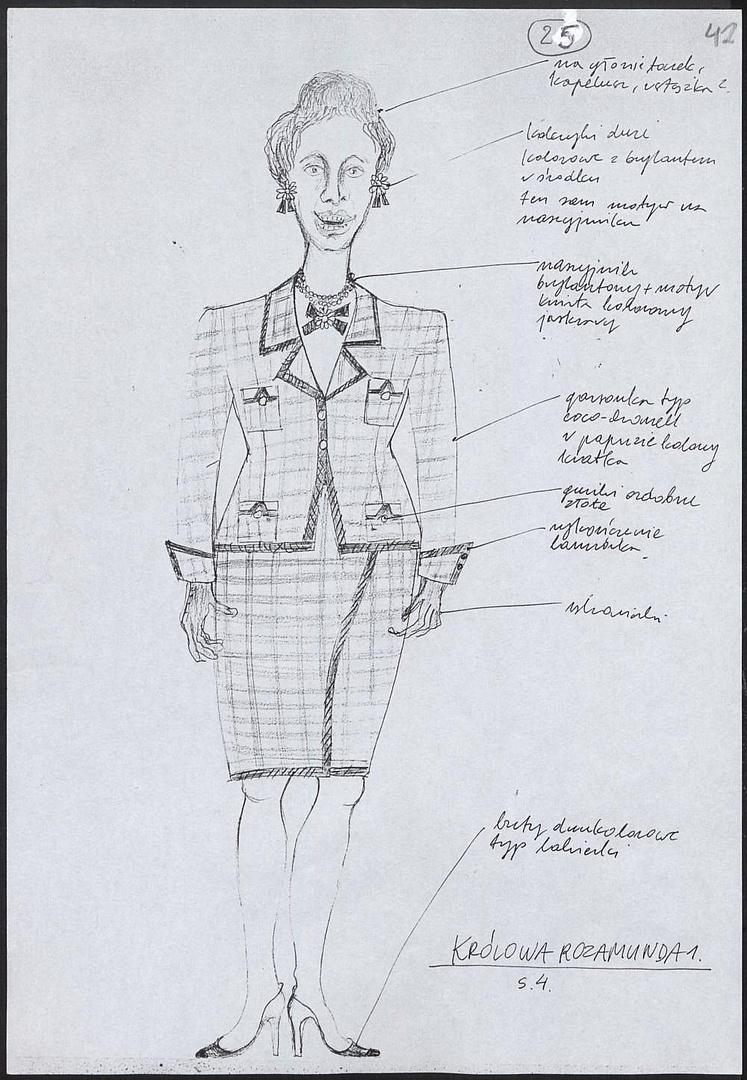 25
42
na głowie toczek,
kapelusz, wstążka?
kolczyki duże
kolorowe z brylantem
w środku
ten sam motyw na
naszyjniku
naszyjnik
brylantowy + motyw
kwiatu kolorowy
jaskrawy
garsonka typ
coco-chanell
w papuzie kolory
kratka
guziki ozdobne
złote
wykończenie
lamówka
rękawiczki
buty dwukolorowe
typ lakierki
KRÓLOWA ROZAMUNDA 1.
s. 4.